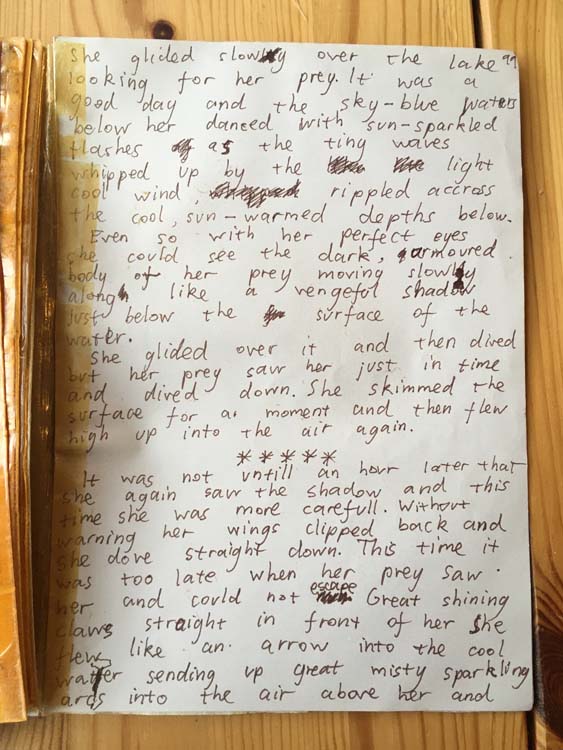 She glided slowly over the lake
looking for her prey. It was a
good day and the sky-blue waters
below her danced with sun-sparkled
flashes as the tiny waves
whipped up by the light
cool wind, rippled accross
the cool, sun-warmed depths below.
Even so with her perfect eyes
she could see the dark, armoured
body of her prey moving slowly
along like a vengeful shadow
just below the surface of the
water.
She glided over it and then dived
but her prey saw her just in time
and dived down. She skimmed the
surface for a moment and then flew
high up into the air again.
*****
It was not untill an hour later that
she again saw the shadow and this
time she was more carefull. Without
warning her wings clipped back and
she dove straight down. This time it
was too late when her prey saw
her and could not escape Great shining
claws straight in front of her she
flew like an arrow into the cool
water sending up great misty sparkling
arcs into the air above her and